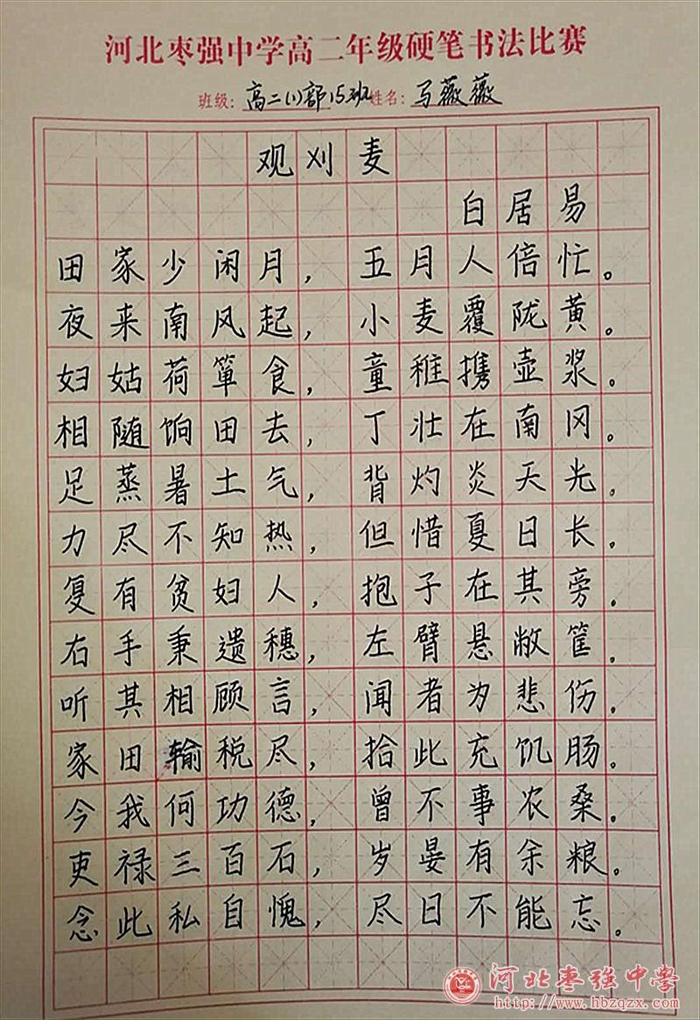 河北枣强中学高二年级硬笔书法比赛
班级：高二(1)部15班姓名：马薇薇
观刈麦
白居易
田家少闲月，五月人倍忙。
夜来南风起，小麦覆陇黄。
妇姑荷箪食，童稚携壶浆。
相随饷田去，丁壮在南冈。
足蒸暑土气，背灼炎天光。
力尽不知热，但惜夏日长。
复有贫妇人，抱子在其旁。
右手秉遗穗，左臂悬敝筐。
听其相顾言，闻者为悲伤。
家田输税尽，拾此充饥肠。
今我何功德，曾不事农桑。
吏禄三百石，岁晏有余粮。
念此私自愧，尽日不能忘。
河北枣强中学
www.hbzqzx.com